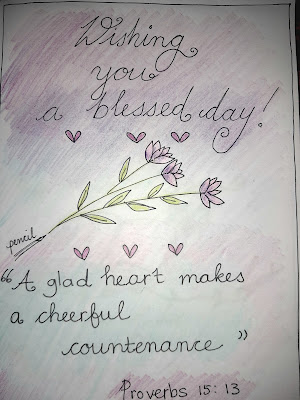 Wishing
you
a blessed day!
pencil
"A glad heart makes
a cheerful
countenance"
Proverbs 15:13